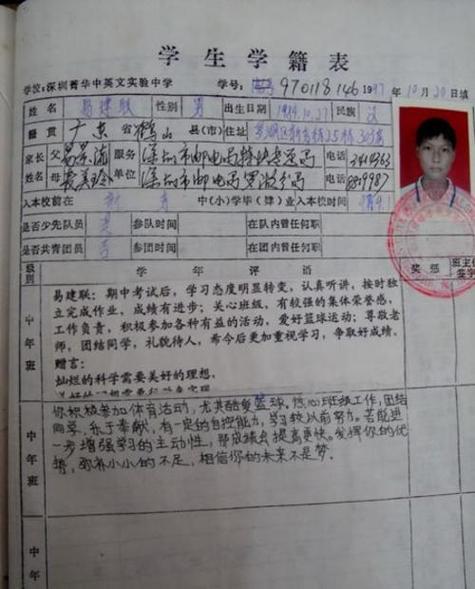 学生学籍表
学校:深圳菁华中英文实验中学 学号: 970118146 1997年10月20日填
姓名 易建联 性别 男 出生日期 1984.10.27 民族 汉
籍贯 广东省鹤山县(市) 住址
家长姓名 父 易景流 服务 深圳市邮电局 电话
母 麦美玲 单位 深圳市邮电局 电话
入本校前在 中(小)学毕(肄)业入本校时间
是否少先队员 是 参队时间 在队内曾任何职
是否共青团员 否 参团时间 在团内曾任何职
级别 学年评语 奖惩 班主任签字
中年班
易建联:期中考试后,学习态度明显转变,认真听讲,按时独
立完成作业,成绩有进步;关心班级,有较强的集体荣誉感,
工作负责,积极参加各种有益的活动,爱好篮球运动;尊敬老
师,团结同学,礼貌待人,希今后更加重视学习,争取好成绩。
赠言:
灿烂的科学需要美好的理想,
中年班
你积极参加体育活动,尤其酷爱篮球。热心班级工作,团结
同学,乐于奉献,有一定的自控能力,学习较以前努力。若能进
一步增强学习的主动性,那成绩会提高更快。发挥你的优
势,弥补小小的不足,相信你的未来不是梦。
中年